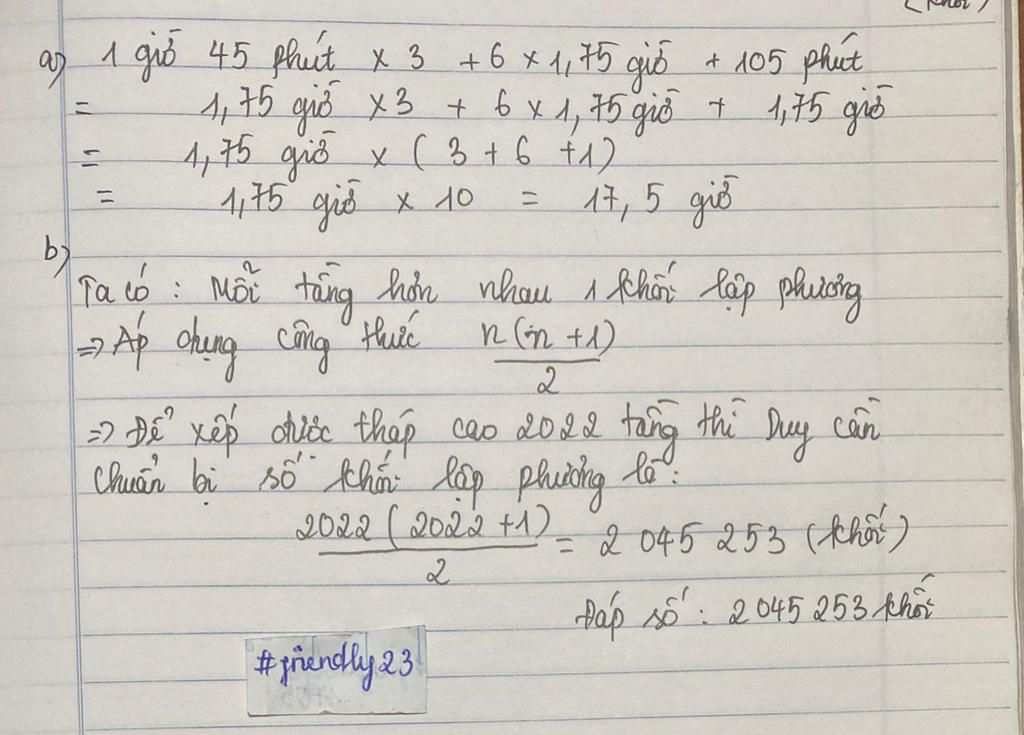 (khối)
a) 1 giờ 45 phút × 3 + 6 × 1,75 giờ + 105 phút
= 1,75 giờ × 3 + 6 × 1,75 giờ + 1,75 giờ
= 1,75 giờ × ( 3 + 6 + 1)
= 1,75 giờ × 10 = 17,5 giờ
b)
Ta có : Mỗi tầng hơn nhau 1 khối lập phương
=> Áp dụng công thức n(n+1)/2
=> Để xếp được tháp cao 2022 tầng thì Duy cần
chuẩn bị số khối lập phương là :
2022(2022+1)/2 = 2 045 253 (khối)
Đáp số : 2 045 253 khối
#friendly23